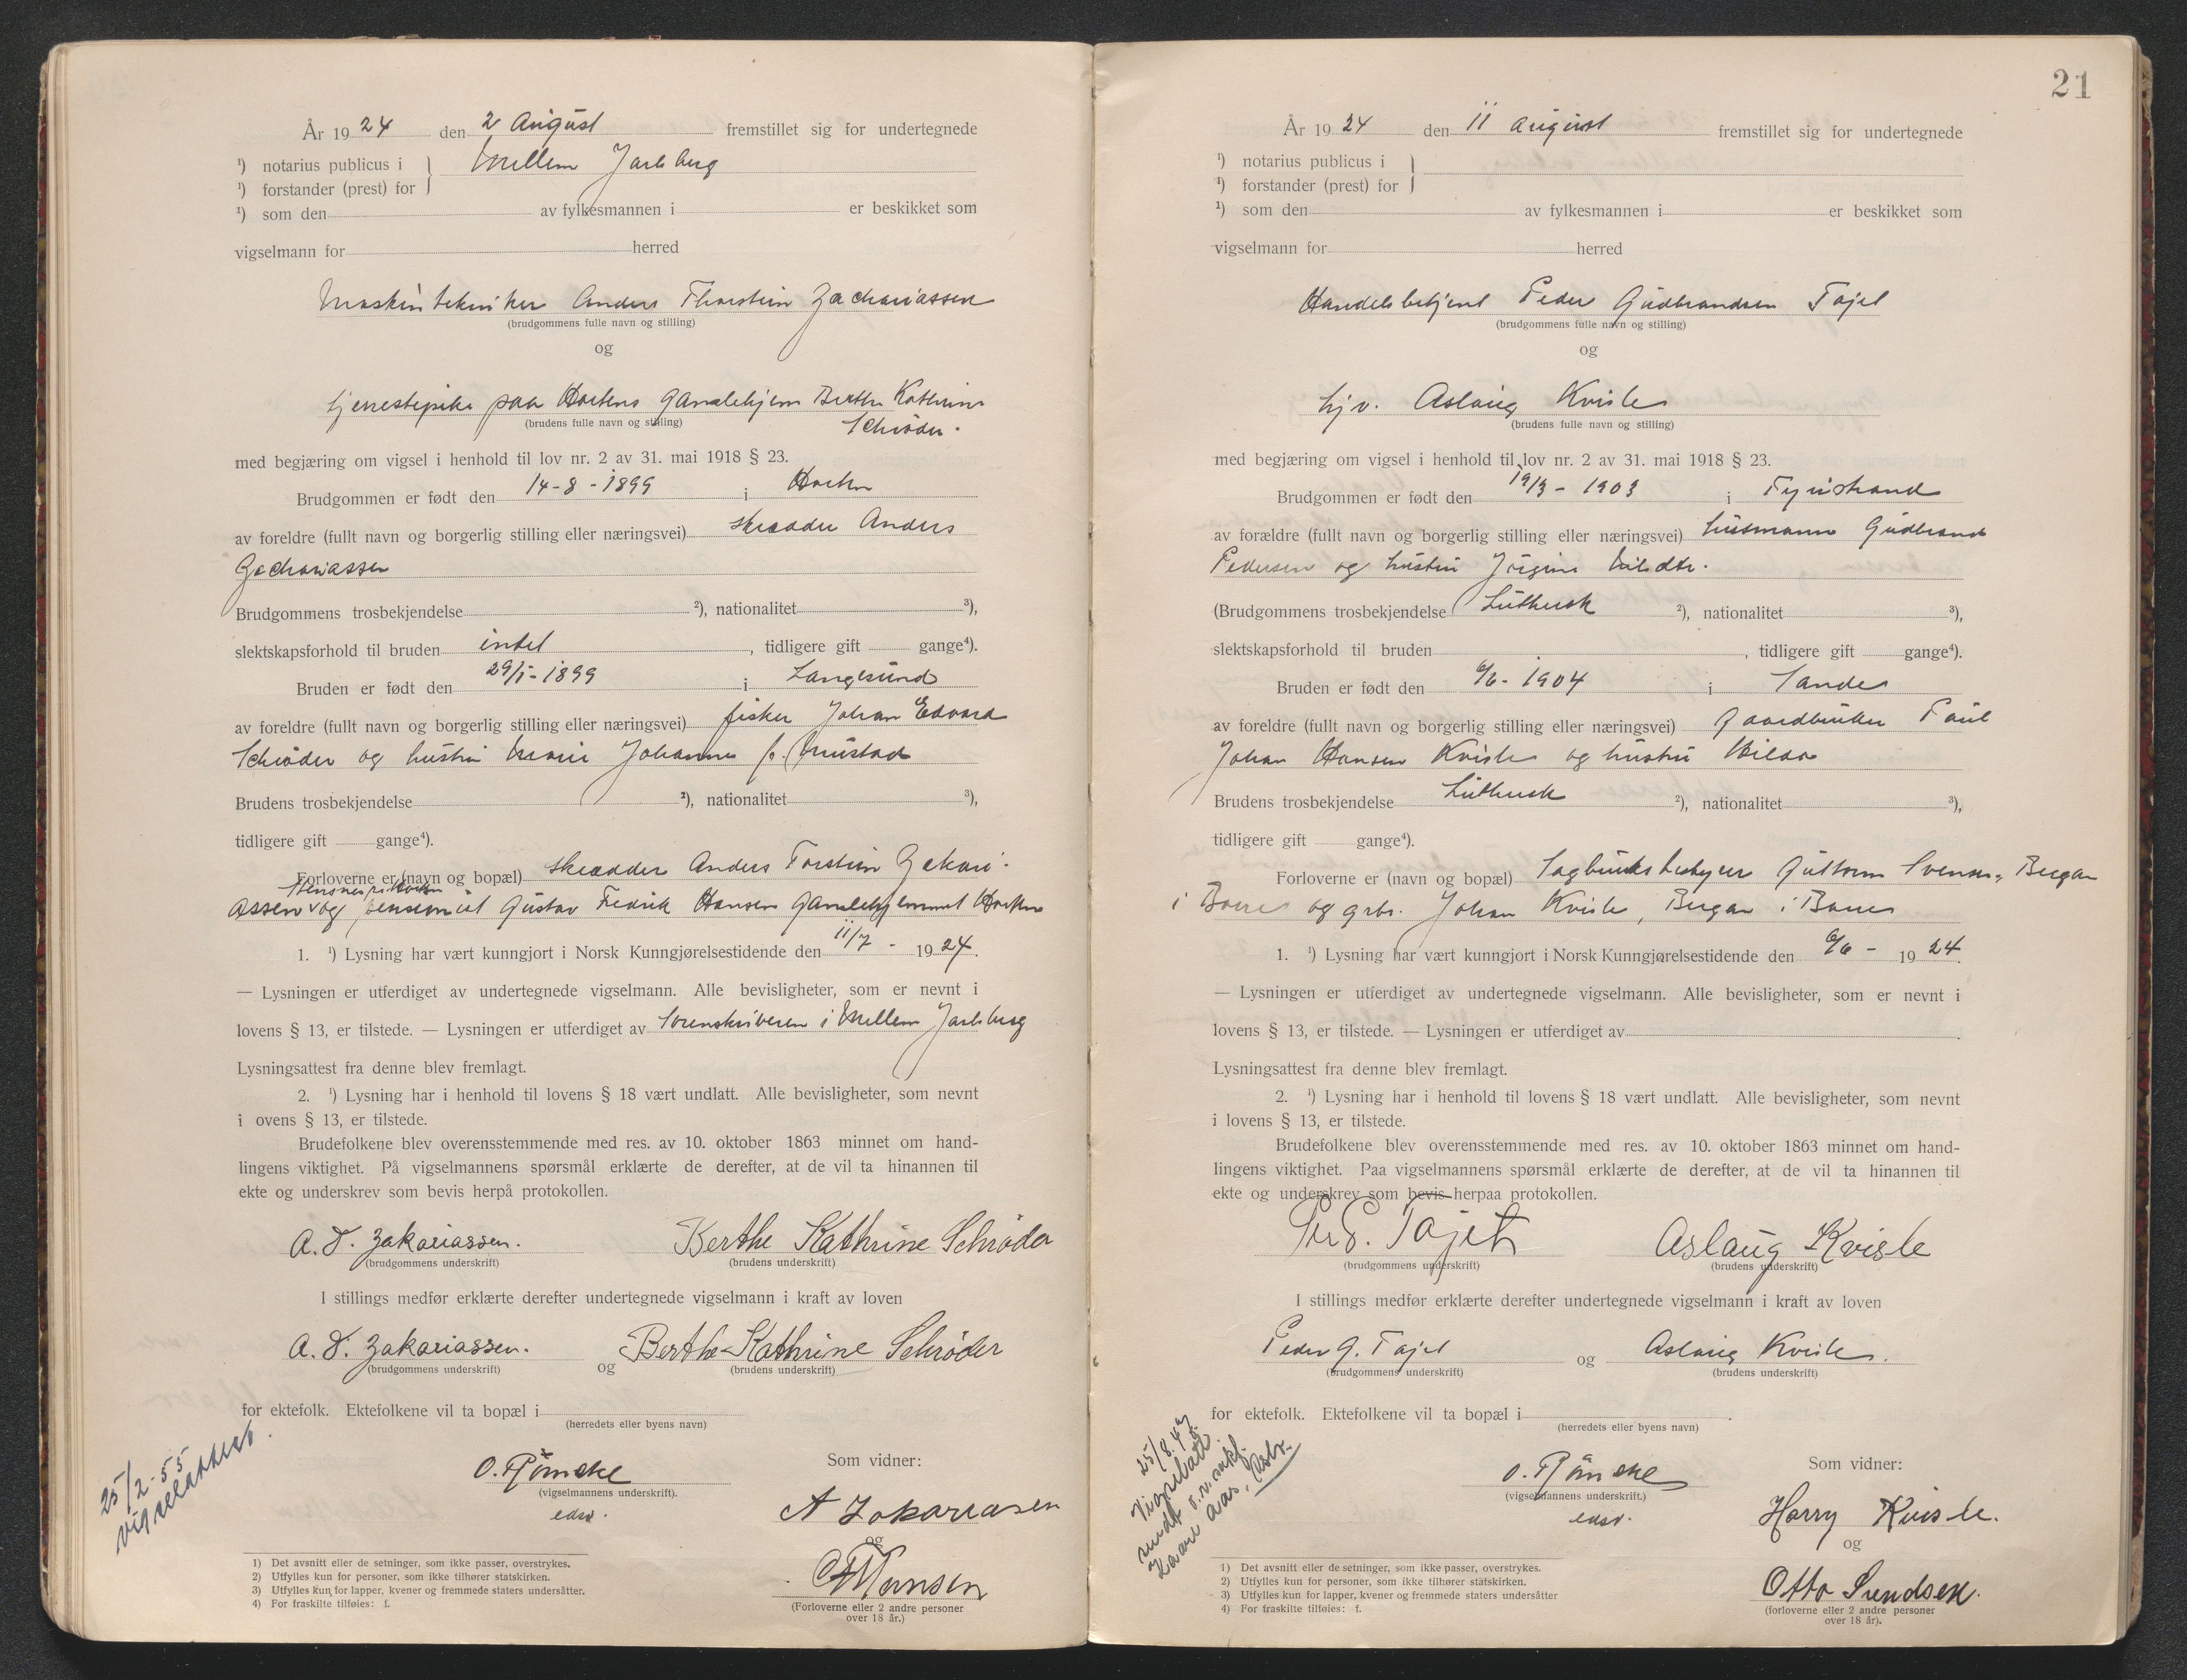 År 1924 den 2 August fremstillet sig for undertegnede
¹) notarius publicus i } Mellem Jarlsberg
¹) forstander (prest) for
¹) som den av fylkesmannen i er beskikket som
vigselmann for herred
Maskintekniker Anders Thorstein Zachariassen
(brudgommens fulle navn og stilling)
og
tjenestepike paa Hortens Gamlehjem Berthe Kathrine
(brudens fulle navn og stilling) Schrøder.
med begjæring om vigsel i henhold til lov nr. 2 av 31. mai 1918 § 23.
Brudgommen er født den 14-8-1899 i Horten
av foreldre (fullt navn og borgerlig stilling eller næringsvei) skrædder Anders
Zachariassen
Brudgommens trosbekjendelse ²), nationalitet ³),
slektskapsforhold til bruden intet , tidligere gift gange⁴).
Bruden er født den 29/1-1899 i Langesund
av foreldre (fullt navn og borgerlig stilling eller næringsvei) fisker Johan Edvard
Schrøder og hustru Marie Johanne f. Mustad
Brudens trosbekjendelse ²), nationalitet ³),
tidligere gift gange⁴).
Forloverne er (navn og bopæl) skrædder Anders Torstein Zakari-
assen og Gustav Fredrik Hansen Gamlehjemmet Horten
1. ¹) Lysning har vært kunngjort i Norsk Kunngjørelsestidende den 11/7 - 1924.
— Lysningen er utferdiget av undertegnede vigselmann. Alle bevisligheter, som er nevnt i
lovens § 13, er tilstede. — Lysningen er utferdiget av Sorenskriveren i Mellem Jarlsberg
Lysningsattest fra denne blev fremlagt.
2. ¹) Lysning har i henhold til lovens § 18 vært undlatt. Alle bevisligheter, som nevnt
i ovens § 13, er tilstede.
Brudefolkene blev overensstemmende med res. av 10. oktober 1863 minnet om hand-
lingens viktighet. På vigselmannens spørsmål erklærte de derefter, at de vil ta hinannen til
ekte og underskrev som bevis herpå protokollen.
A. T. Zakariassen. Berthe Kathrine Schrøder
(brudgommens underskrift) (brudens underskrift)
I stillings medfør erklærte derefter undertegnede vigselmann i kraft av loven
A. T. Zakariassen. og Berthe Kathrine Schrøder
(brudgommens underskrift) (brudens underskrift)
for ektefolk. Ektefolkene vil ta bopæl i
(herredets eller byens navn)
25/2-55
vigselattest.
Som vidner:
(vigselmannens underskrift).
edsv.
A Zakariasen
og
Hansen
(Forloverne eller 2 andre personer
over 18 år.)
1) Det avsnitt eller de setninger, som ikke passer, overstrykes.
2) Utfylles kun for personer, som ikke tilhører statskirken.
3) Utfylles kun for lapper, kvener og fremmede staters undersåtter.
4) For fraskilte tilføies: f.
21
År 1924 den 11 august fremstillet sig for undertegnede
¹) notarius publicus i }
¹) forstander (prest) for
¹) som den av fylkesmannen i er beskikket som
vigselmann for herred
Handelsbetjent Peder Gudbrandsen Tajet
(brudgommens fulle navn og stilling)
og
hjv. Aslaug Kvisle
(brudens fulle navn og stilling)
med begjæring om vigsel i henhold til lov nr. 2 av 31. mai 1918 § 23.
Brudgommen er født den 19/3 - 1903 i Tyristrand
av forældre (fullt navn og borgerlig stilling eller næringsvei) husmann Gudbrand
Pedersen og hustru Jørgine
(Brudgommens trosbekjendelse Luthersk ²), nationalitet ³),
slektskapsforhold til bruden , tidligere gift gange⁴).
Bruden er født den 6/6 - 1904 i Sande
av foreldre (fullt navn og borgerlig stilling eller næringsvei) gaardbruker Paul
Johan Hansen Kvisle og hustru Hilda
Brudens trosbekjendelse Luthersk ²), nationalitet ³),
tidligere gift gange⁴).
Forloverne er (navn og bopæl) Sagbruksbestyrer Guttorm Svensen, Bergan
i Borre og grbr. Johan Kvisle, Bergan i Borre
1. ¹) Lysning har vært kunngjort i Norsk Kunngjørelsestidende den 6/6 - 1924.
— Lysningen er utferdiget av undertegnede vigselmann. Alle bevisligheter, som er nevnt i
lovens § 13, er tilstede. — Lysningen er utferdiget av
Lysningsattest fra denne blev fremlagt.
2. ¹) Lysning har i henhold til lovens § 18 vært undlatt. Alle bevisligheter, som nevnt
i lovens § 13, er tilstede.
Brudefolkene blev overensstemmende med res. av 10. oktober 1863 minnet om hand-
lingens viktighet. Paa vigselmannens spørsmål erklærte de derefter, at de vil ta hinannen til
ekte og underskrev som bevis herpaa protokollen.
Per G. Tajet Aslaug Kvisle
(brudgommens underskrift) (brudens underskrift)
I stillings medfør erklærte derefter undertegnede vigselmann i kraft av loven
Peder G. Tajet og Aslaug Kvisle.
(brudgommens underskrift) (brudens underskrift)
for ektefolk. Ektefolkene vil ta bopæl i
(herredets eller byens navn)
25/8.47
Vigselatt.
sendt o.r.sakf.
Kaare Aas,
Som vidner:
(vigselmannens underskrift.)
edsv.
Harry Kvisle.
og
Otto Svendsen.
(forloverne eller 2 andre personer
over 18 år).
1) Det avsnitt eller de setninger, som ikke passer, overstrykes.
2) Utfylles kun for personer, som ikke tilhører statskirken.
3) Utfylles kun for lapper, kvener og fremmede staters undersåtter
4) For fraskilte tilføies: f.